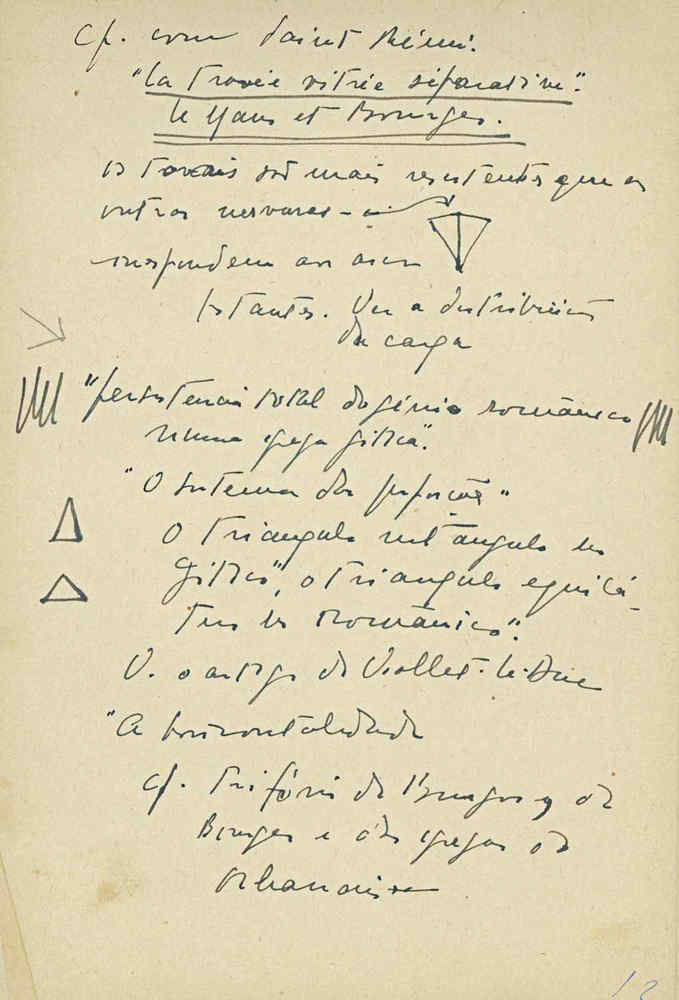 Cf. com Saint Rémi.
"La travée vitrée séparative".
le Mans et Bourges.
os torais são mais resistentes que as
outras nervuras – a
correspondem aos
Ver a distribuição
da carga
"persistencia total do génio românico
numa igreja gótica".
"O sistema das proporções"
O triangulo rectângulo no
gótico", o triangulo equilá-
tero no românico".
V. o artigo de Viollet-le-Duc
"A horizontalidade
cf. trifório de Burgos, de
Bourges e das igrejas de